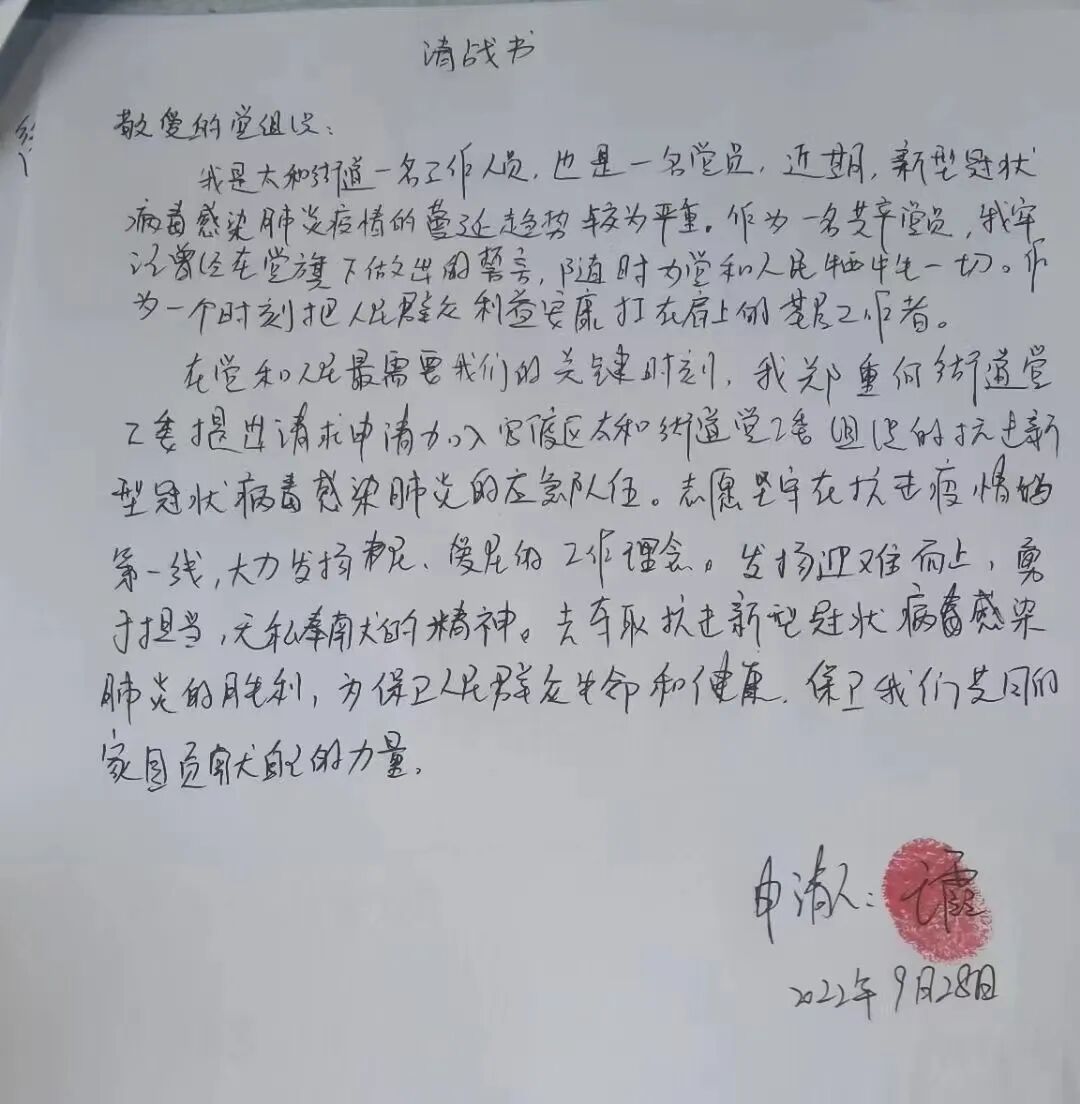 请战书
敬爱的党组织：
我是太和街道一名工作人员，也是一名党员，近期，新型冠状
病毒感染肺炎疫情的蔓延趋势较为严重。作为一名共产党员，我牢
记曾经在党旗下做出的誓言，随时为党和人民牺牲一切。作
为一个时刻把人民群众利益安康扛在肩上的基层工作者。
在党和人民最需要我们的关键时刻，我郑重向街道党
工委提出请求申请加入官渡区太和街道党工委组织的抗击新
型冠状病毒感染肺炎的应急队伍。志愿坚守在抗击疫情的
第一线，大力发扬、爱民的工作理念。发扬迎难而上，勇
于担当，无私奉献的精神。去夺取抗击新型冠状病毒感染
肺炎的胜利，为保卫人民群众生命和健康．保卫我们共同的
家园贡献自己的力量．
申请人：
2022年9月28日